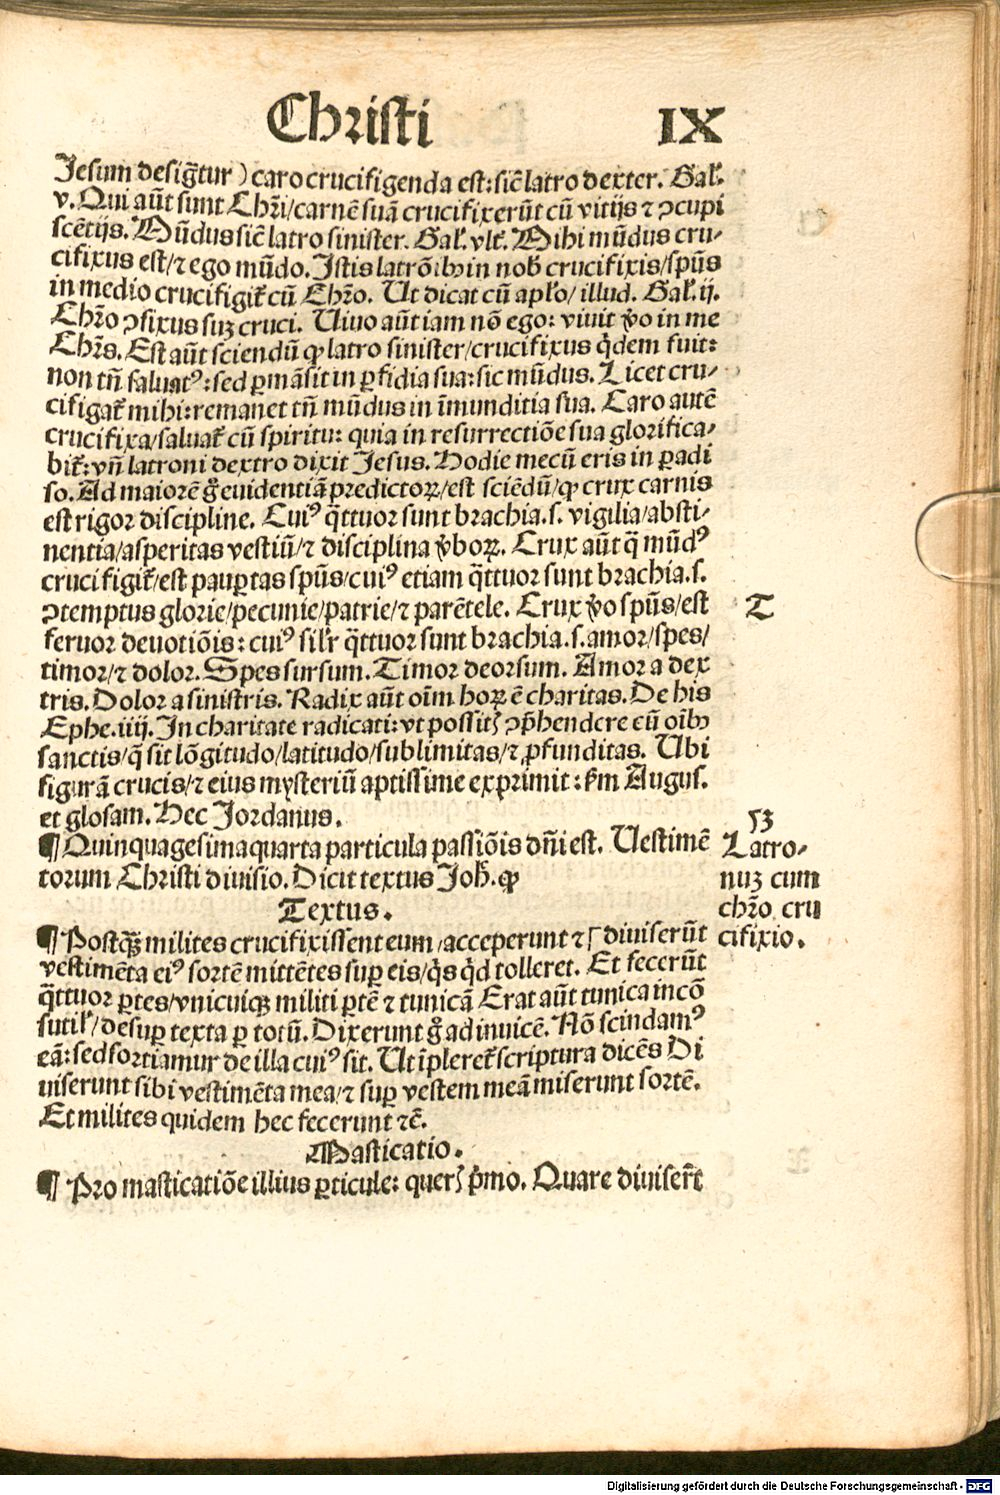 Christi IX
Jesum desig̃tur) caro crucifigenda est: sic̃ latro dexter. Gal̃.
v. Qui aũt sunt Chr̃i/carnẽ suã crucifixerũt cũ vitijs ⁊ ꝯcupi
scẽtijs. Mũdus sic̃ latro sinister. Gal̃. vlt̃. Mihi mũdus cru-
cifixus est/⁊ ego mũdo. Istis latrõibꝫ in nob̃ crucifixis/spũs
in medio crucifigit̃ cũ Chr̃o. Ut dicat cũ apl̃o/ illud. Gal̃. ij.
Chr̃o ꝯfixus suꝫ cruci. Uiuo aũt iam nõ ego: viuit ṽo in me
Chr̃s. Est aũt sciendũ ꝙ latro sinister/crucifixus q̃dem fuit:
non tñ saluatꝰ: sed ꝑmãsit in ꝑfidia sua: sic mũdus. Licet cru-
cifigat̃ mihi: remanet tñ mũdus in ĩmunditia sua. Caro autẽ
crucifixa/saluat̃ cũ spiritu: quia in resurrectiõe sua glorifica-
bit̃: vñ latroni dextro dixit Jesus. Hodie mecũ eris in ꝑadi
so. Ad maiorẽ g̊ euidentiã predictoꝝ/est sciẽdũ/ꝙ crux carnis
est rigor discipline. Cuiꝰ q̃ttuor sunt brachia.s. vigilia/absti-
nentia/asperitas vestiũ/⁊ disciplina ṽboꝝ. Crux aũt q̃ mũdꝰ
crucifigit̃/est pauꝑtas spũs/cuiꝰ etiam q̃ttuor sunt brachia.s.
ꝯtemptus glorie/pecunie/patrie/⁊ parẽtele. Crux ṽo spũs/est
T
feruor deuotiõis: cuiꝰ sil̃r q̃ttuor sunt brachia.s. amor/spes/
timor/⁊ dolor. Spes sursum. Timor deorsum. Amor a dex
tris. Dolor a sinistris. Radix aũt oĩm hoꝝ ẽ charitas. De his
Ephe.iiij. In charitate radicati: vt possitꝭ ꝯp̃hendere cũ oĩbꝫ
sanctis/q̃ sit lõgitudo/latitudo/sublimitas/⁊ ꝓfunditas. Ubi
figurã crucis/⁊ eius mysteriũ aptissime exprimit: s̃m Augus.
et glosam. Hec Jordanus.
¶ Quinquagesimaquarta particula passiõis dñi est. Uestimẽ
torum Christi diuisio. Dicit textus Joh̃. ꝙ
53
Latro-
nuꝫ cum
chr̃o cru
cifixio.
Textus.
¶ Postꝙ̃ milites crucifixissent eum/acceperunt ⁊ diuiserũt
vestimẽta eiꝰ sortẽ mittẽtes suꝑ eis/q̃s q̃d tolleret. Et fecerũt
q̃ttuor ꝑtes/vnicuiqꝫ militi ꝑtẽ ⁊ tunicã Erat aũt tunica incõ
sutil̃/desuꝑ texta ꝑ totũ. Dixerunt g̊ adinuicẽ. Nõ scindamꝰ
eã: sed sortiamur de illa cuiꝰ sit. Ut ĩpleret̃ scriptura dicẽs Di
uiserunt sibi vestimẽta mea/⁊ suꝑ vestem meã miserunt sortẽ.
Et milites quidem hec fecerunt ⁊c̃.
Masticatio.
¶ Pro masticatiõe illius ꝑticule: querꝭ p̃mo. Quare diuiser̃t
Digitalisierung gefördert durch die Deutsche Forschungsgemeinschaft - DFG